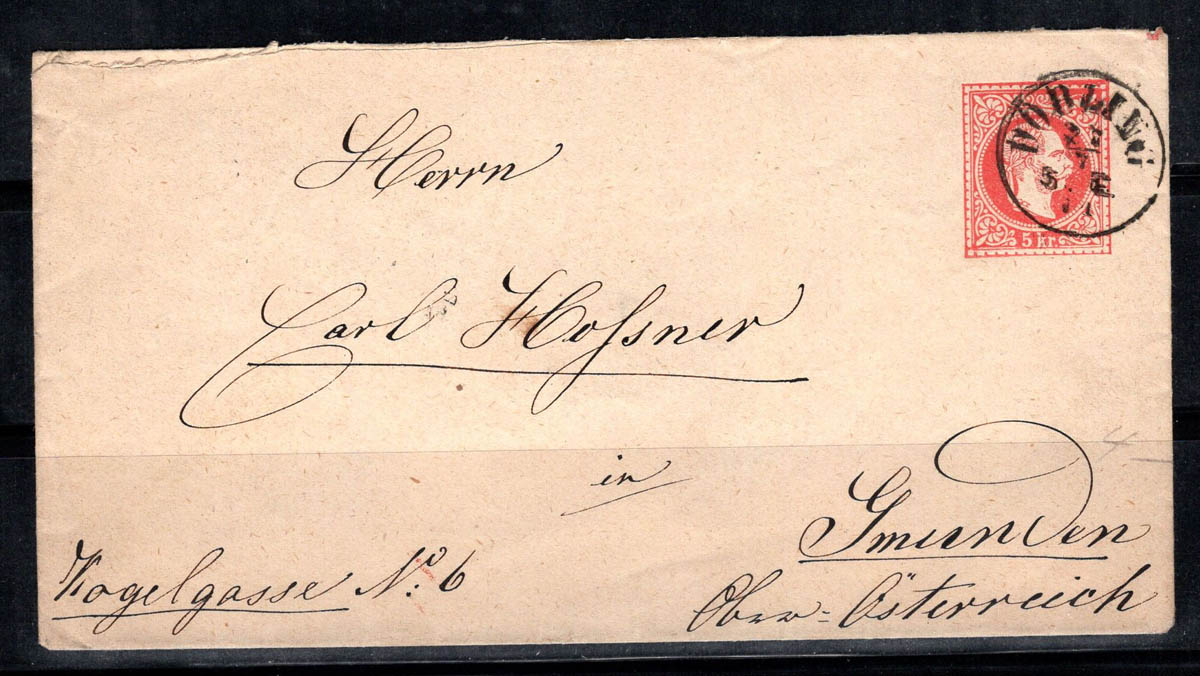 DÖBLING
5 kr
Herrn
Carl Hoſsner
in
Gmunden
Kogelgasse No: 6
Ober-Österreich